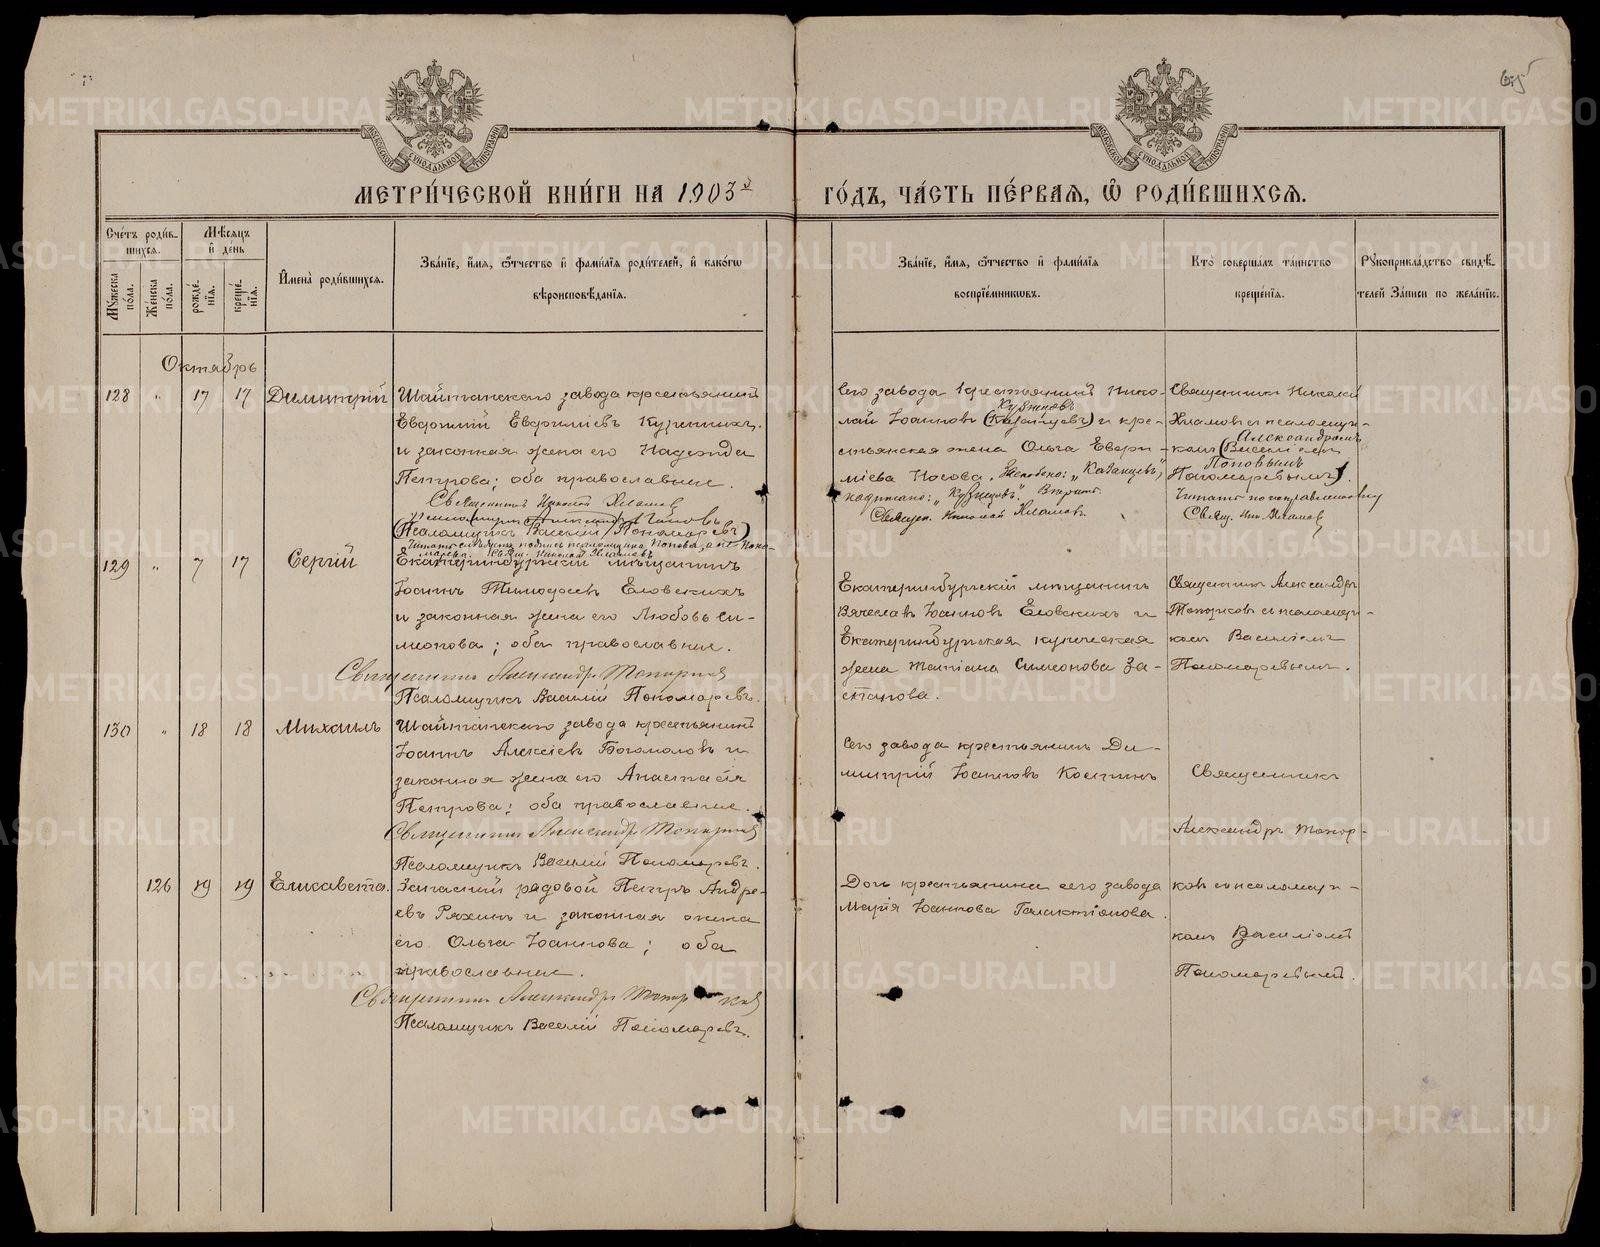 МЕТРИ́ЧЕСКОЙ КНИ́ГИ НА 1903й ГО́ДЪ, ЧА́СТЬ ПЕ́РВАѦ, Ѡ҆ РОДИ́ВШИХСѦ.
МОСКОВСКОЙ СѴНОДАЛЬНОЙ ТИПОГРАФІИ
МОСКОВСКОЙ СѴНОДАЛЬНОЙ ТИПОГРАФІИ
Сче́тъ роди́в-
шихсѧ.
Мꙋжеска по́ла.
Же́нска по́ла.
Мѣ́сѧцъ
и҆ де́нь
рожде́-
нїѧ.
креще́-
нїѧ.
И҆мена̀ роди́вшихсѧ.
Зва́нїе, и҆́мѧ, ѻ҆́тчество и҆ фами́лїѧ роди́телей, и҆ како́гѡ
вѣроисповѣ́данїѧ.
Зва́нїе, и҆́мѧ, ѻ҆́тчество и҆ фами́лїѧ
воспрїе́мникѡвъ.
Кто̀ соверша́лъ та́инство
креще́нїѧ.
Рꙋкоприкла́дство свидѣ́-
телей за́писи по жела́нїю.
Октябрь
128 " 17 17 Димитрій
Шайтанскаго завода крестьянинъ
Евфимій Евфиміевъ
и законная жена его Надежда
Петрова; оба православные.
Священникъ Николай Хламов
(Псаломщикъ Василій Пономаревъ)
Священ. Николай Хламовъ
Сего завода крестьянинъ Нико-
лай Іоанновъ (Казанцевъ) и кре-
Кузнецовъ
стьянская жена Ольга Евфи-
міева Носова. "Казанцевъ",
надписано: "Кузнецовъ". Вѣрно.
Священ. Николай Хламовъ.
Священникъ Николай
Хламовъ и псаломщи-
комъ (Василіемъ
Александромъ
Поповымъ
Пономаревымъ).
Читать по исправленному
Свящ. Ник. Хламов
129 " 7 17 Сергій
Екатеринбургскій мѣщанинъ
Іоаннъ Тимофеевъ Еловскихъ
и законная жена его Любовь Си-
меонова; оба православные.
Священникъ Александръ Топорков
Псаломщикъ Василій Пономаревъ.
Екатеринбургскій мѣщанинъ
Вячеславъ Іоанновъ Еловскихъ и
Екатеринбургская купеческая
жена Татіана Симеонова За-
Священникъ Александръ
Топорковъ и псаломщи-
комъ Василіемъ
Пономаревымъ.
130 " 18 18 Михаилъ
Шайтанскаго завода крестьянинъ
Іоаннъ Алексіевъ Богомоловъ и
законная жена его Анастасія
Петрова; оба православные.
Священникъ Александръ Топорков
Псаломщикъ Василій Пономаревъ.
Сего завода крестьянинъ Ди-
митрій Іоанновъ Костинъ
Священникъ
Александръ Топор-
126 19 19 Елисавета.
Запасный рядовой Петръ Андре-
евъ Ряхинъ и законная жена
его Ольга Іоаннова; оба
православные.
Священникъ Александръ Топорков
Псаломщикъ Василій Пономаревъ.
Дочь крестьянина сего завода
Марія Іоаннова Галактіонова.
ковъ и псаломщи-
комъ Василіемъ
Пономаревымъ.
METRIKI.GASO-URAL.RU